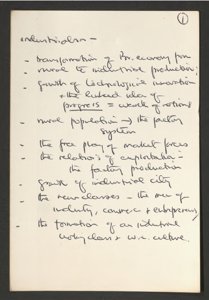 ①
industrialism –
- transformation of Br. economy from
- rural to industrial production:
- growth of technological innovation
+ the linked idea of
progress = wheels of
- rural population → the factory
system
- the free play of market forces
- the relations of exploitation –
the factory production
- growth of industrial city
- the new classes – the men of
industry, commerce + entrepreneurs
- the formation of an industrial
working class + w.c. culture.